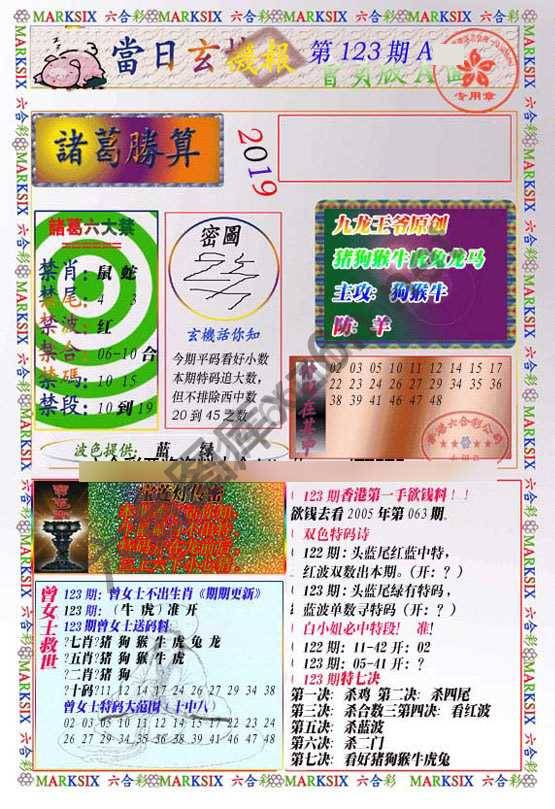 MARKSIX 六合彩 MARKSIX 六合彩 MARKSIX 六合彩 MARKSIX 六合彩
當日玄機報 第123期A
专用章
諸葛勝算
2019
諸葛六大禁
禁肖：鼠 蛇
禁尾：4 3
禁波：红
禁合：06-10合
禁碼：10 15
禁段：10到19
密圖
玄機話你知
今期平码看好小数
本期特码追大数，
但不排除西中数
20到45之数
九龙王爷原创
猪狗猴牛虎兔龙马
主攻：狗猴牛
防：羊
02 03 05 10 11 12 14 15 17
19 22 24 27 28 29 34 35 36
38 39 41 46 47 48
波色提供：蓝 绿
曾女士救世
123期：曾女士不出生肖《期期更新》
123期：（牛虎）准开
123期曾女士送码料
?七肖?猪狗猴牛虎兔龙
?五肖?猪狗猴牛虎
?二肖?猪狗
?十码?11 12 14 17 21 27 29 34 38
曾女士特码大范围（十中八）
02 03 05 10 11 12 14 15 17 22 23 24
26 27 29 34 35 36 38 39 41 46 47 48
123期香港第一手欲钱料！！
欲钱去看2005年第063期。
双色特码诗
122期：头蓝尾红蓝中特，
红波双数出本期。（开：？）
123期：头蓝尾绿有特码，
蓝波单数寻特码（开：？）
白小姐必中特段！ 准！
122期：11-42开：02
123期：05-41开：？
123期特七决
第一决：杀鸡 第二决：杀四尾
第三决：杀合数三第四决：看红波
第五决：杀蓝波
第六决：杀二门
第七决：看好猪狗猴牛虎兔
MARKSIX 六合彩 MARKSIX 六合彩 MARKSIX 六合彩 MARKSIX 六合彩